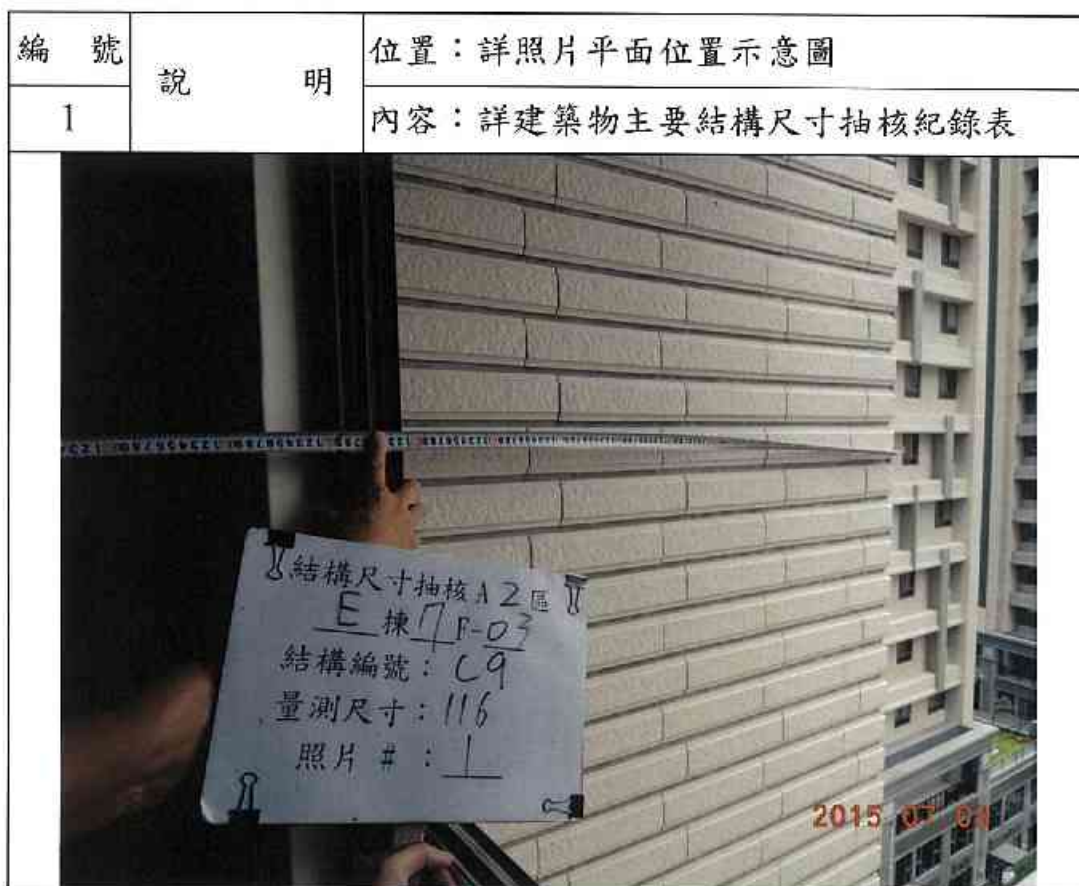 編 號
1
說 明
位置：詳照片平面位置示意圖
內容：詳建築物主要結構尺寸抽核紀錄表
結構尺寸抽核 A 2 區
E 棟 7 F-03
結構編號：C9
量測尺寸：116
照片 #：1
2015 07 0